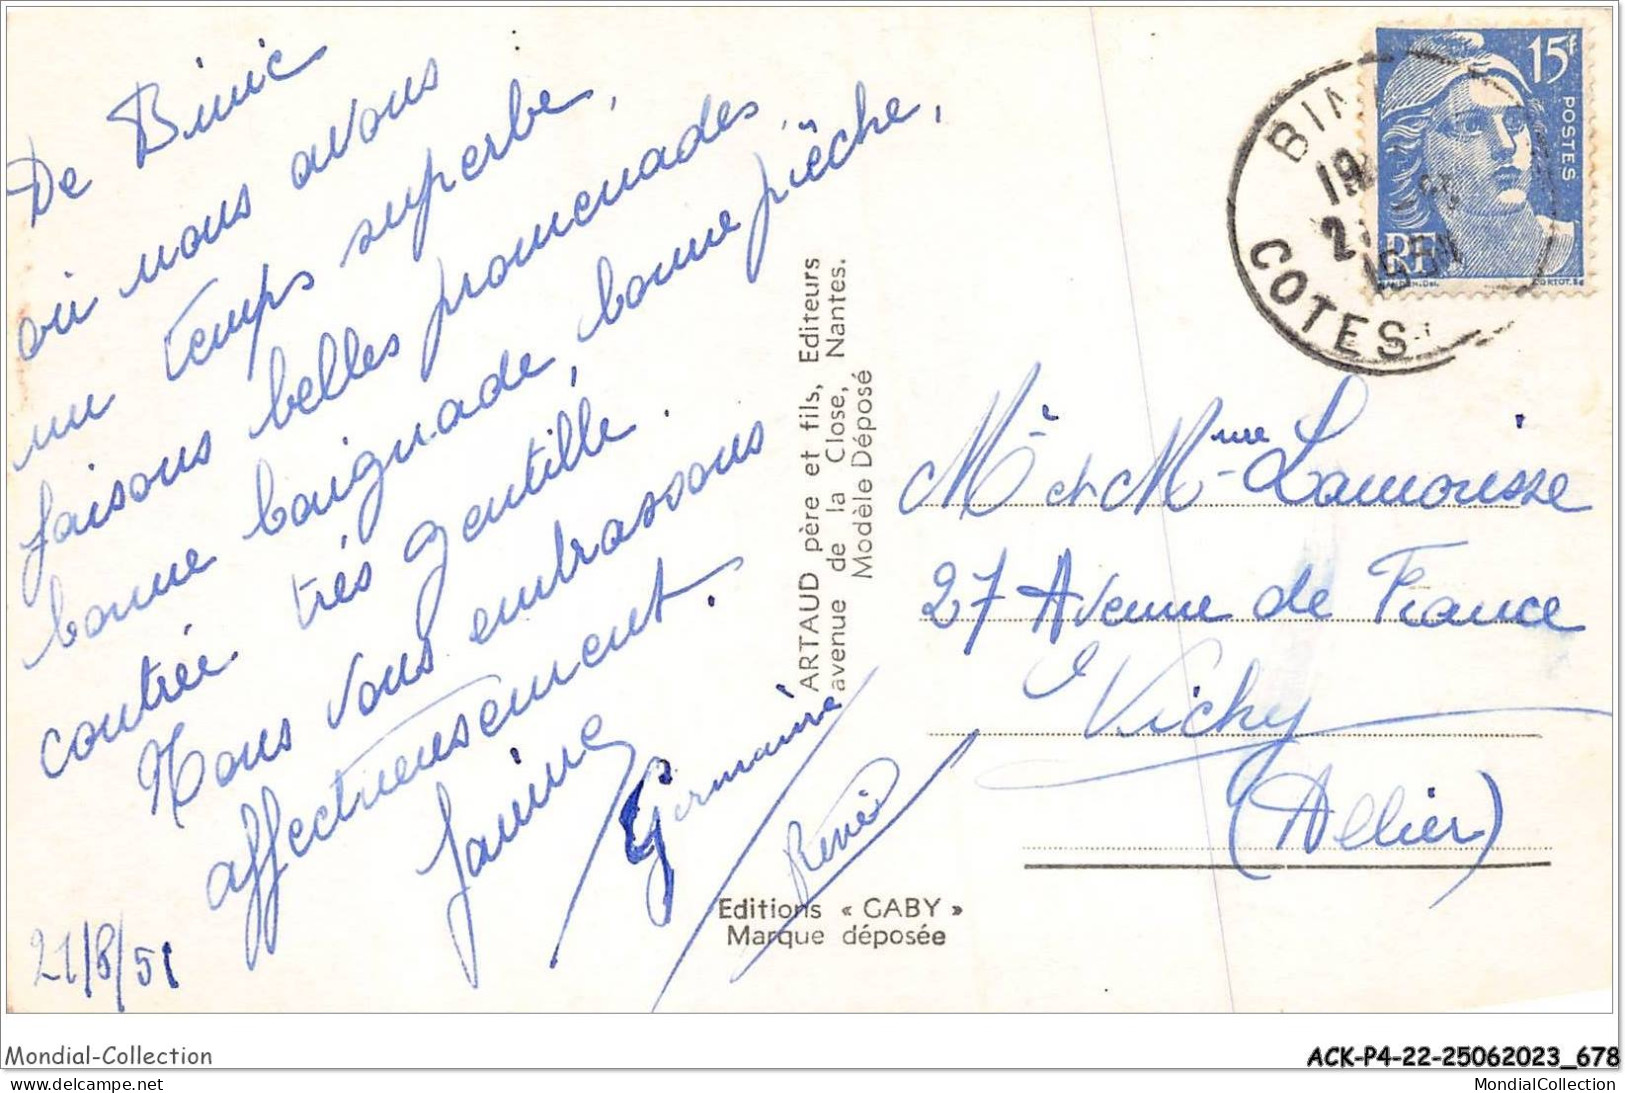 De Binic
où nous avons
un temps superbe,
faisons belles promenades,
bonne baignade, bonne piêche,
contrée très gentille.
Nous vous embrassons
affectueusement.
Janine
Germaine
René
21/8/51
ARTAUD père et fils, Editeurs
avenue de la Close, Nantes.
Modèle Déposé
Editions « GABY »
Marque déposée
15f
POSTES
RF
GANDON.Del.
CORTOT.Sc
BIN
19
2
1951
COTES
Mr et Mme Lamorisse
27 Avenue de France
Vichy
(Allier)
Mondial-Collection
ACK-P4-22-25062023_678
www.delcampe.net
MondialCollection